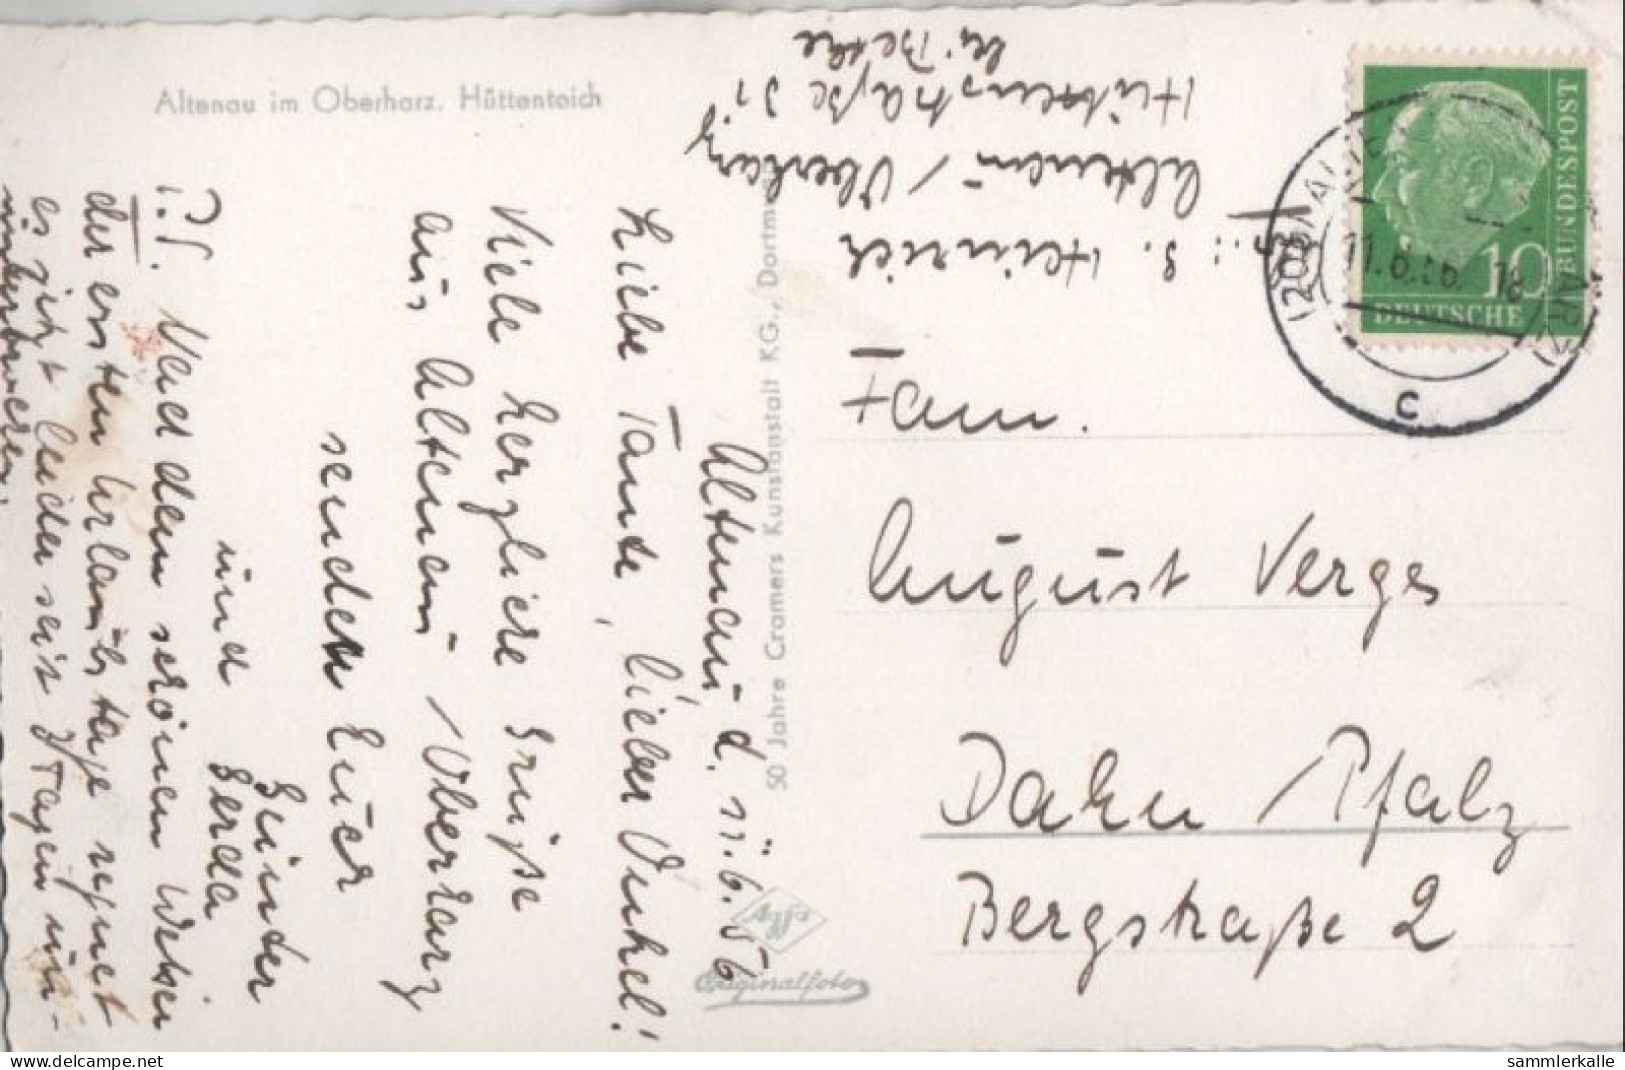 Altenau im Oberharz. Hüttenteich
Altenau, d. 11.6.56
Liebe Tante, lieber Onkel!
Viele herzliche Grüße
aus Altenau / Oberharz
senden Euer
Günder
und Gerda
P.S. Nach dem schönen Wetter
der ersten Urlaubstage regnet
es jetzt leider seit 3 Tagen un-
unterbrochen.
50 Jahre Cramers Kunstanstalt KG., Dortmund
Agfa
Originalfoto
Abs.: G. Heinrich
Altenau / Oberharz
Hüttenstraße 31
bei Bethe
DEUTSCHE BUNDESPOST
10
(20b) ALTENAU
11.6.56. 18
HARZ)
c
Fam.
August Verges
Dahn / Pfalz
Bergstraße 2
www.delcampe.net
sammlerkalle